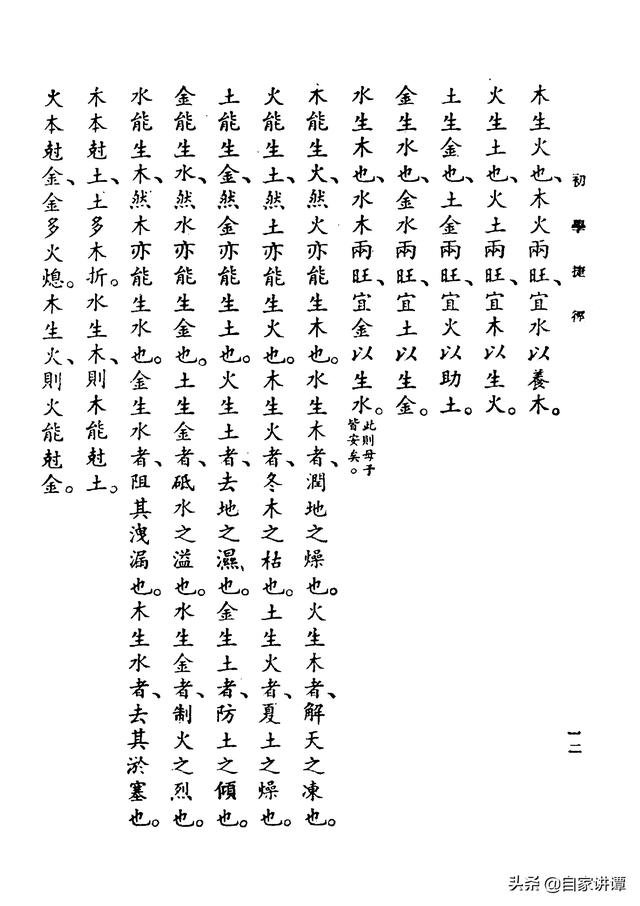 初學捷徑
一二
木生火也、木火兩旺、宜水以養木。
火生土也、火土兩旺、宜木以生火。
土生金也、土金兩旺、宜火以助土。
金生水也、金水兩旺、宜土以生金。
水生木也、水木兩旺、宜金以生水。此則母子皆安矣。
木能生火、然火亦能生木也。水生木者、潤地之燥也。火生木者、解天之凍也。
火能生土、然土亦能生火也。木生火者、冬木之枯也。土生火者、夏土之燥也。
土能生金、然金亦能生土也。火生土者、去地之濕也。金生土者、防土之傾也。
金能生水、然水亦能生金也。土生金者、砥水之溢也。水生金者、制火之烈也。
水能生木、然木亦能生水也。金生水者、阻其洩漏也。木生水者、去其淤塞也。
木本尅土、土多木折。水生木、則木能尅土。
火本尅金、金多火熄。木生火、則火能尅金。
头条 @自家讲谭